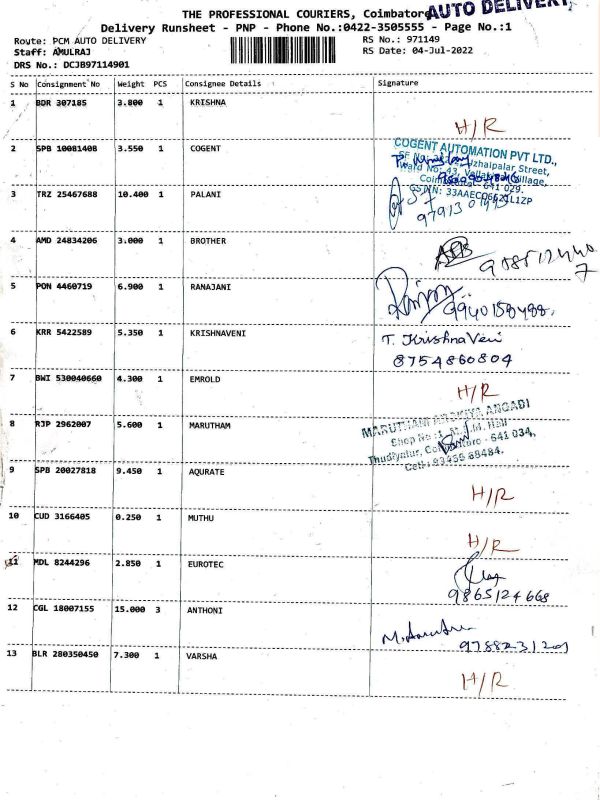 THE PROFESSIONAL COURIERS, Coimbatore
AUTO DELIVERY
Delivery Runsheet - PNP - Phone No.:0422-3505555 - Page No.:1
Route: PCM AUTO DELIVERY
RS No.: 971149
Staff: AMULRAJ
RS Date: 04-Jul-2022
DRS No.: DCJB97114901
S No Consignment No Weight PCS Consignee Details Signature
1 BDR 307185 3.800 1 KRISHNA
H/R
2 SPB 10081408 3.550 1 COGENT
COGENT AUTOMATION PVT LTD.,
Street,
Ward No: 43, Village,
641 029.
3 TRZ 25467688 10.400 1 PALANI
4 AMD 24834206 3.000 1 BROTHER
5 PON 4460719 6.900 1 RANAJANI
9940158488.
6 KRR 5422589 5.350 1 KRISHNAVENI
T. KrishnaVeni
8754860804
7 BWI 530040660 4.300 1 EMROLD
H/R
8 RJP 2962007 5.600 1 MARUTHAM
ANGADI
Shop No
641 034,
9 SPB 20027818 9.450 1 AQURATE
H/R
10 CUD 3166405 0.250 1 MUTHU
H/R
11 MDL 8244296 2.850 1 EUROTEC
9865124668
12 CGL 18007155 15.000 3 ANTHONI
9788231201
13 BLR 280350450 7.300 1 VARSHA
H/R